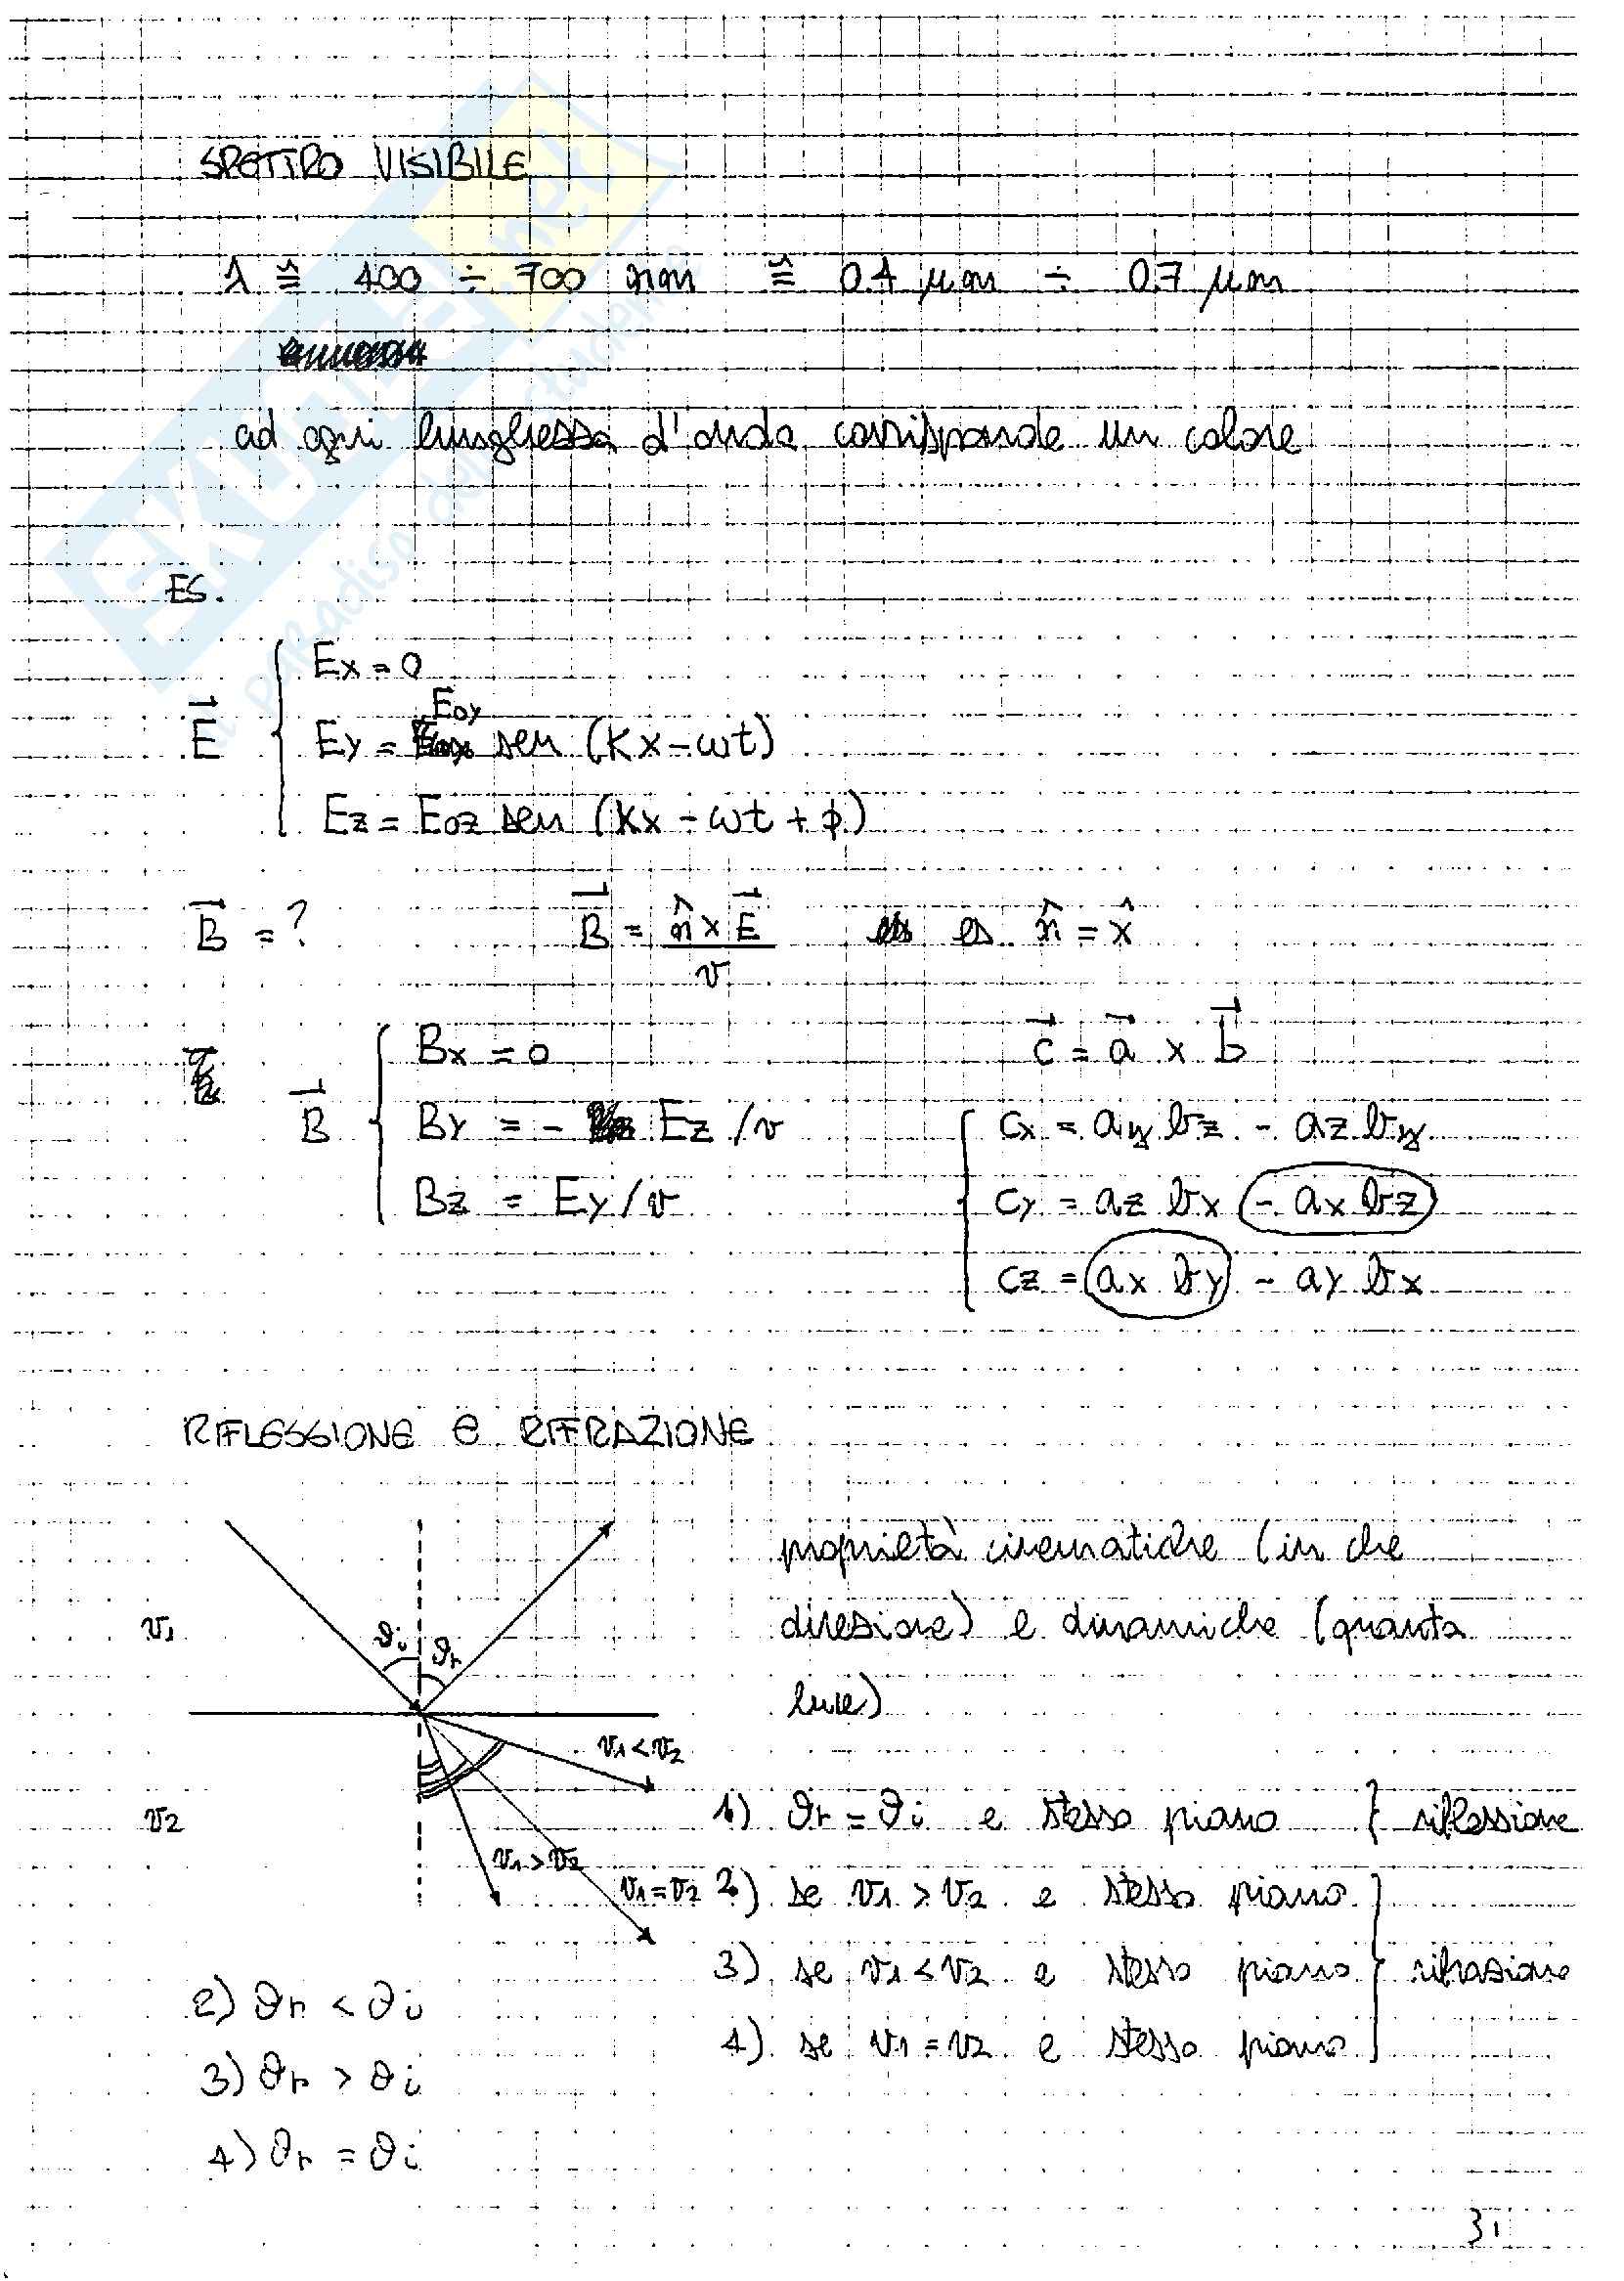 SPETTRO VISIBILE
λ ≅ 400 ÷ 700 nm ≅ 0.4 μm ÷ 0.7 μm
ad ogni lunghezza d'onda corrisponde un colore
ES.
Ex = 0
E⃗ { Ey = Eoy sen (Kx - ωt)
Ez = Eoz sen (Kx - ωt + ϕ)
B⃗ = ? B⃗ = n̂ x E⃗ / v es n̂ = x̂
Bx = 0 c⃗ = a⃗ x b⃗
B⃗ { By = - Ez / v { cx = ay bz - az by
Bz = Ey / v cy = az bx - ax bz
cz = ax by - ay bx
RIFLESSIONE E RIFRAZIONE
proprietà cinematiche (in che
v1 ϑi ϑr direzione) e dinamiche (quanta
luce)
v1 < v2
v2 1) ϑr = ϑi e stesso piano } riflessione
v1 > v2
v1 = v2 2) se v1 > v2 e stesso piano
3) se v1 < v2 e stesso piano } rifrazione
4) se v1 = v2 e stesso piano
2) ϑr < ϑi
3) ϑr > ϑi
4) ϑr = ϑi
31